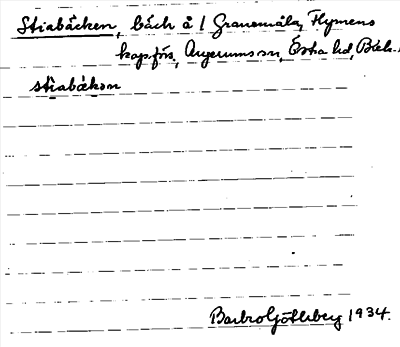 Stiabäcken, bäck å 1 Granemåla, Flymens
kap.förs., Augerums sn, Östra hd, Blek.
stiabäkən
Barbro Götlsberg 1934.